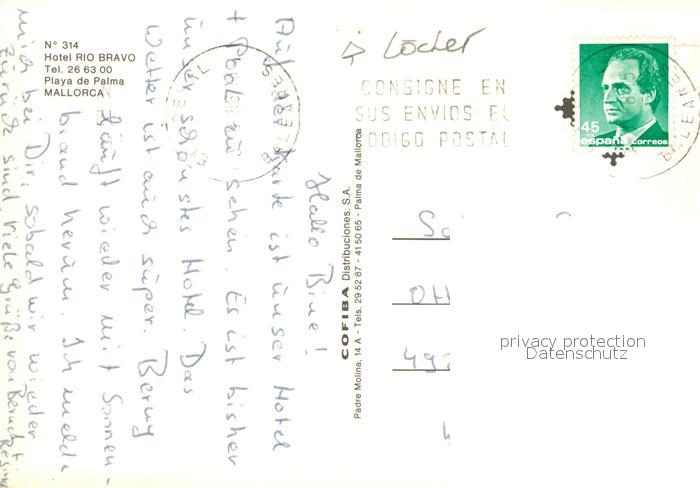 N° 314
Hotel RIO BRAVO
Tel. 26 63 00
Playa de Palma
MALLORCA
Löcher
CONSIGNE EN
SUS ENVIOS EL
CODIGO POSTAL
45
españa correos
BALEARES
Hallo Bine!
Auf der Karte ist unser Hotel
+ Pool zu sehen. Es ist bisher
unser schönstes Hotel. Das
Wetter ist auch super. Berny
läuft wieder mit Sonnen-
brand herum. Ich melde
mich bei Dir, sobald wir wieder
zurück sind. Viele Grüße von Bernd +
COFIBA Distribuciones, S.A.
Padre Molina, 14 A - Tels. 29 52 87 - 41 50 65 - Palma de Mallorca
privacy protection
Datenschutz